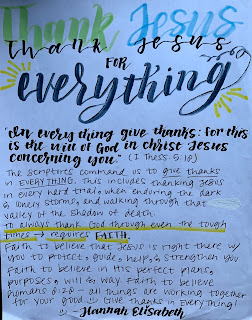 Thank Jesus
thank Jesus
FOR
everything
"In every thing give thanks: for this
is the will of God in Christ Jesus
concerning you." (1 Thess. 5:18)
The Scriptures command us to give thanks
in EVERYTHING. This includes thanking Jesus
in every hard trial, when enduring the dark
& lonely storms, and walking through that
valley of the shadow of death.
To always thank God through even the tough
times → requires FAITH.
Faith to believe that Jesus is right there w/
you to protect, guide, help, & strengthen you
Faith to believe in His perfect plans,
purposes, will & way. Faith to believe
Romans 8:28 - all things are working together
for your good ☺ Give thanks in Everything!
~Hannah Elisabeth